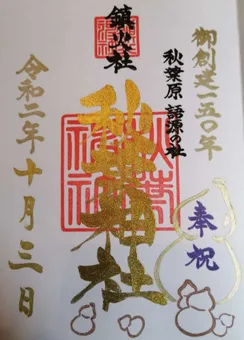 御創建一五〇年
秋葉原 語源の社
奉祝
鎮火社
秋葉神社
令和二年十月三日